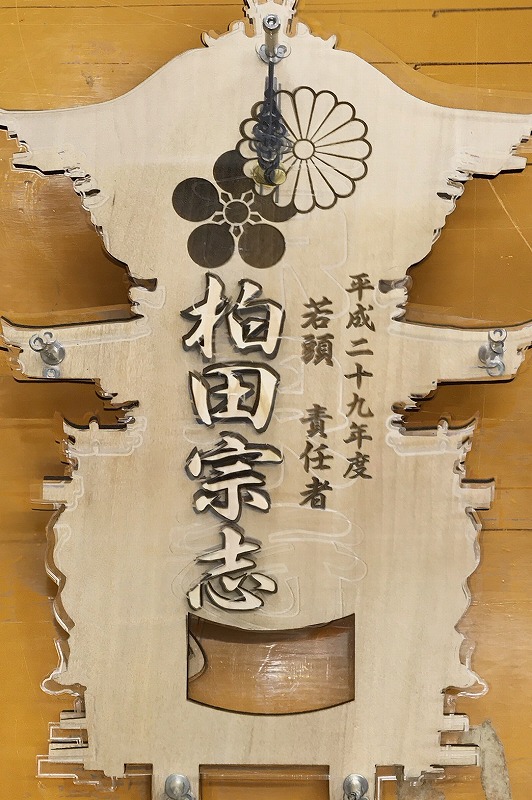 平成二十九年度
若頭 責任者
柏田宗志